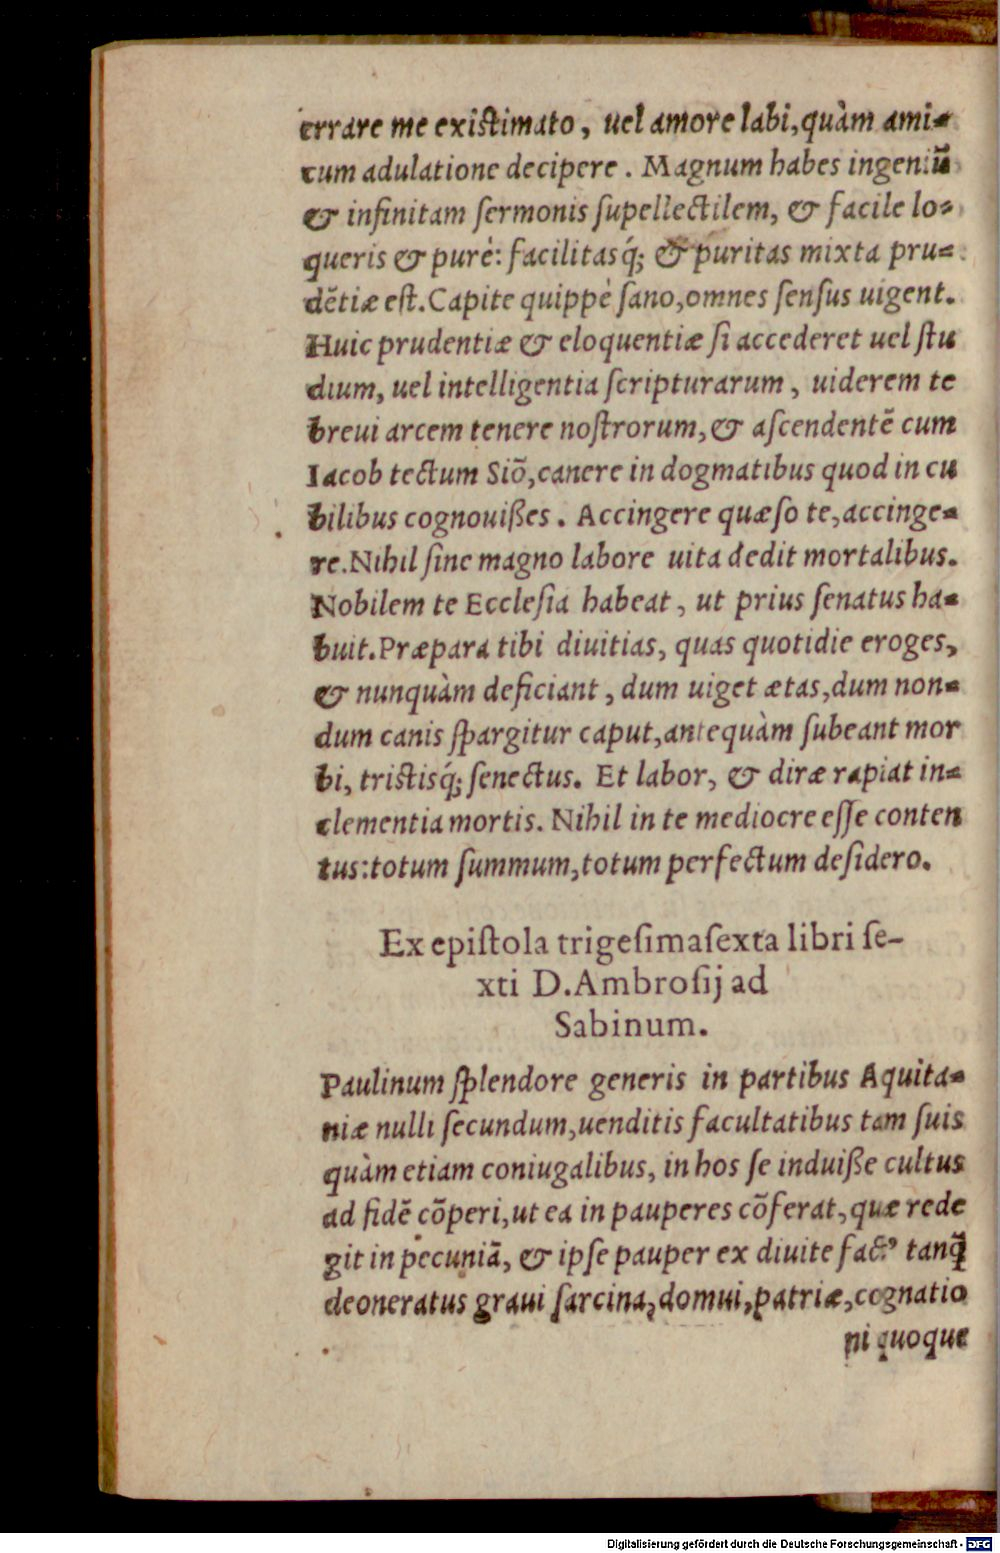 errare me existimato, uel amore labi, quàm ami-
cum adulatione decipere. Magnum habes ingeniū
& infinitam ſermonis ſupellectilem, & facile lo-
queris & purè: facilitasq́; & puritas mixta pru-
dētiæ eſt. Capite quippè ſano, omnes ſenſus uigent.
Huic prudentiæ & eloquentiæ ſi accederet uel ſtu
dium, uel intelligentia ſcripturarum, uiderem te
breui arcem tenere noſtrorum, & aſcendentē cum
Iacob tectum Siō, canere in dogmatibus quod in cu
bilibus cognouißes. Accingere quæſo te, accinge-
re. Nihil ſine magno labore uita dedit mortalibus.
Nobilem te Eccleſia habeat, ut prius ſenatus ha-
buit. Præpara tibi diuitias, quas quotidie eroges,
& nunquàm deficiant, dum uiget ætas, dum non-
dum canis ſpargitur caput, antequàm ſubeant mor
bi, tristisq́; ſenectus. Et labor, & diræ rapiat in-
clementia mortis. Nihil in te mediocre eſſe conten
tus: totum ſummum, totum perfectum deſidero.
Ex epiſtola trigeſimaſexta libri ſe-
xti D. Ambroſij ad
Sabinum.
Paulinum ſplendore generis in partibus Aquita-
niæ nulli ſecundum, uenditis facultatibus tam ſuis
quàm etiam coniugalibus, in hos ſe induiße cultus
ad fidē cōperi, ut ea in pauperes cōferat, quæ rede
git in pecuniā, & ipſe pauper ex diuite factꝰ tanq̄
deoneratus graui ſarcina, domui, patriæ, cognatio
ni quoque
Digitalisierung gefördert durch die Deutsche Forschungsgemeinschaft - DFG